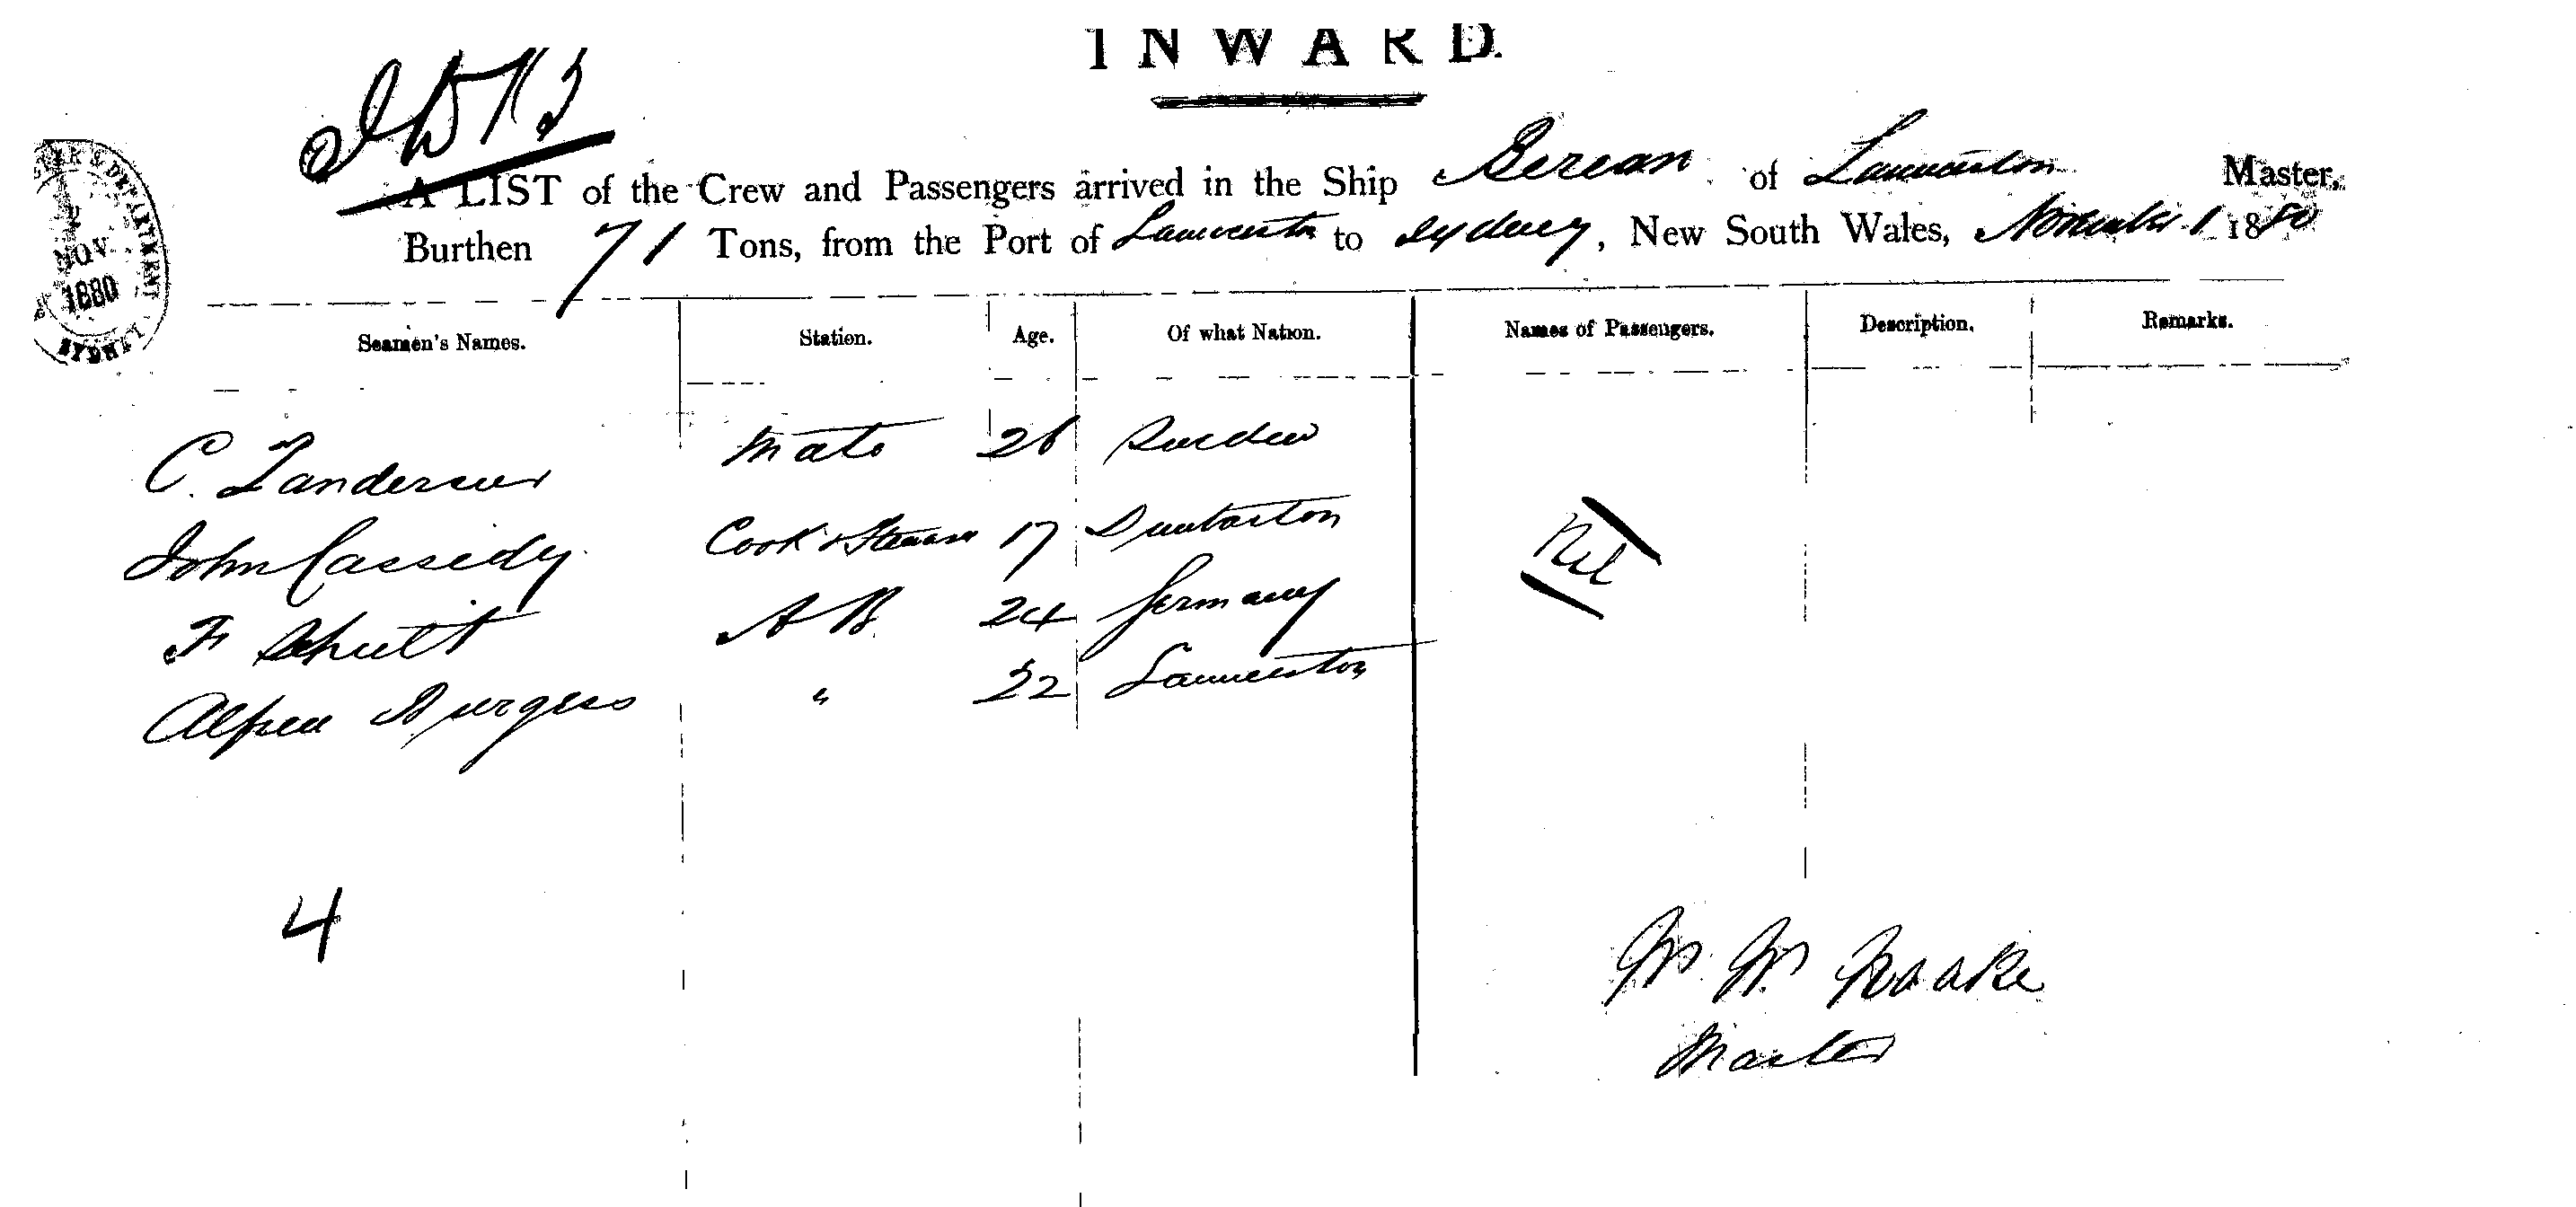 INWARD.
A LIST of the Crew and Passengers arrived in the Ship Berean of Launceston Master,
Burthen 71 Tons, from the Port of Launceston to Sydney, New South Wales, November 1 1880
2
NOV
1880
SYDNEY
Seamen's Names. Station. Age. Of what Nation. Names of Passengers. Description. Remarks.
C. Mate 26 Sweden
John Cassidy Cook & Steward 17 Dumbarton
F Schult A B. 24 Germany
Alfred Burgess " 22 Launceston
Nil
4
Master